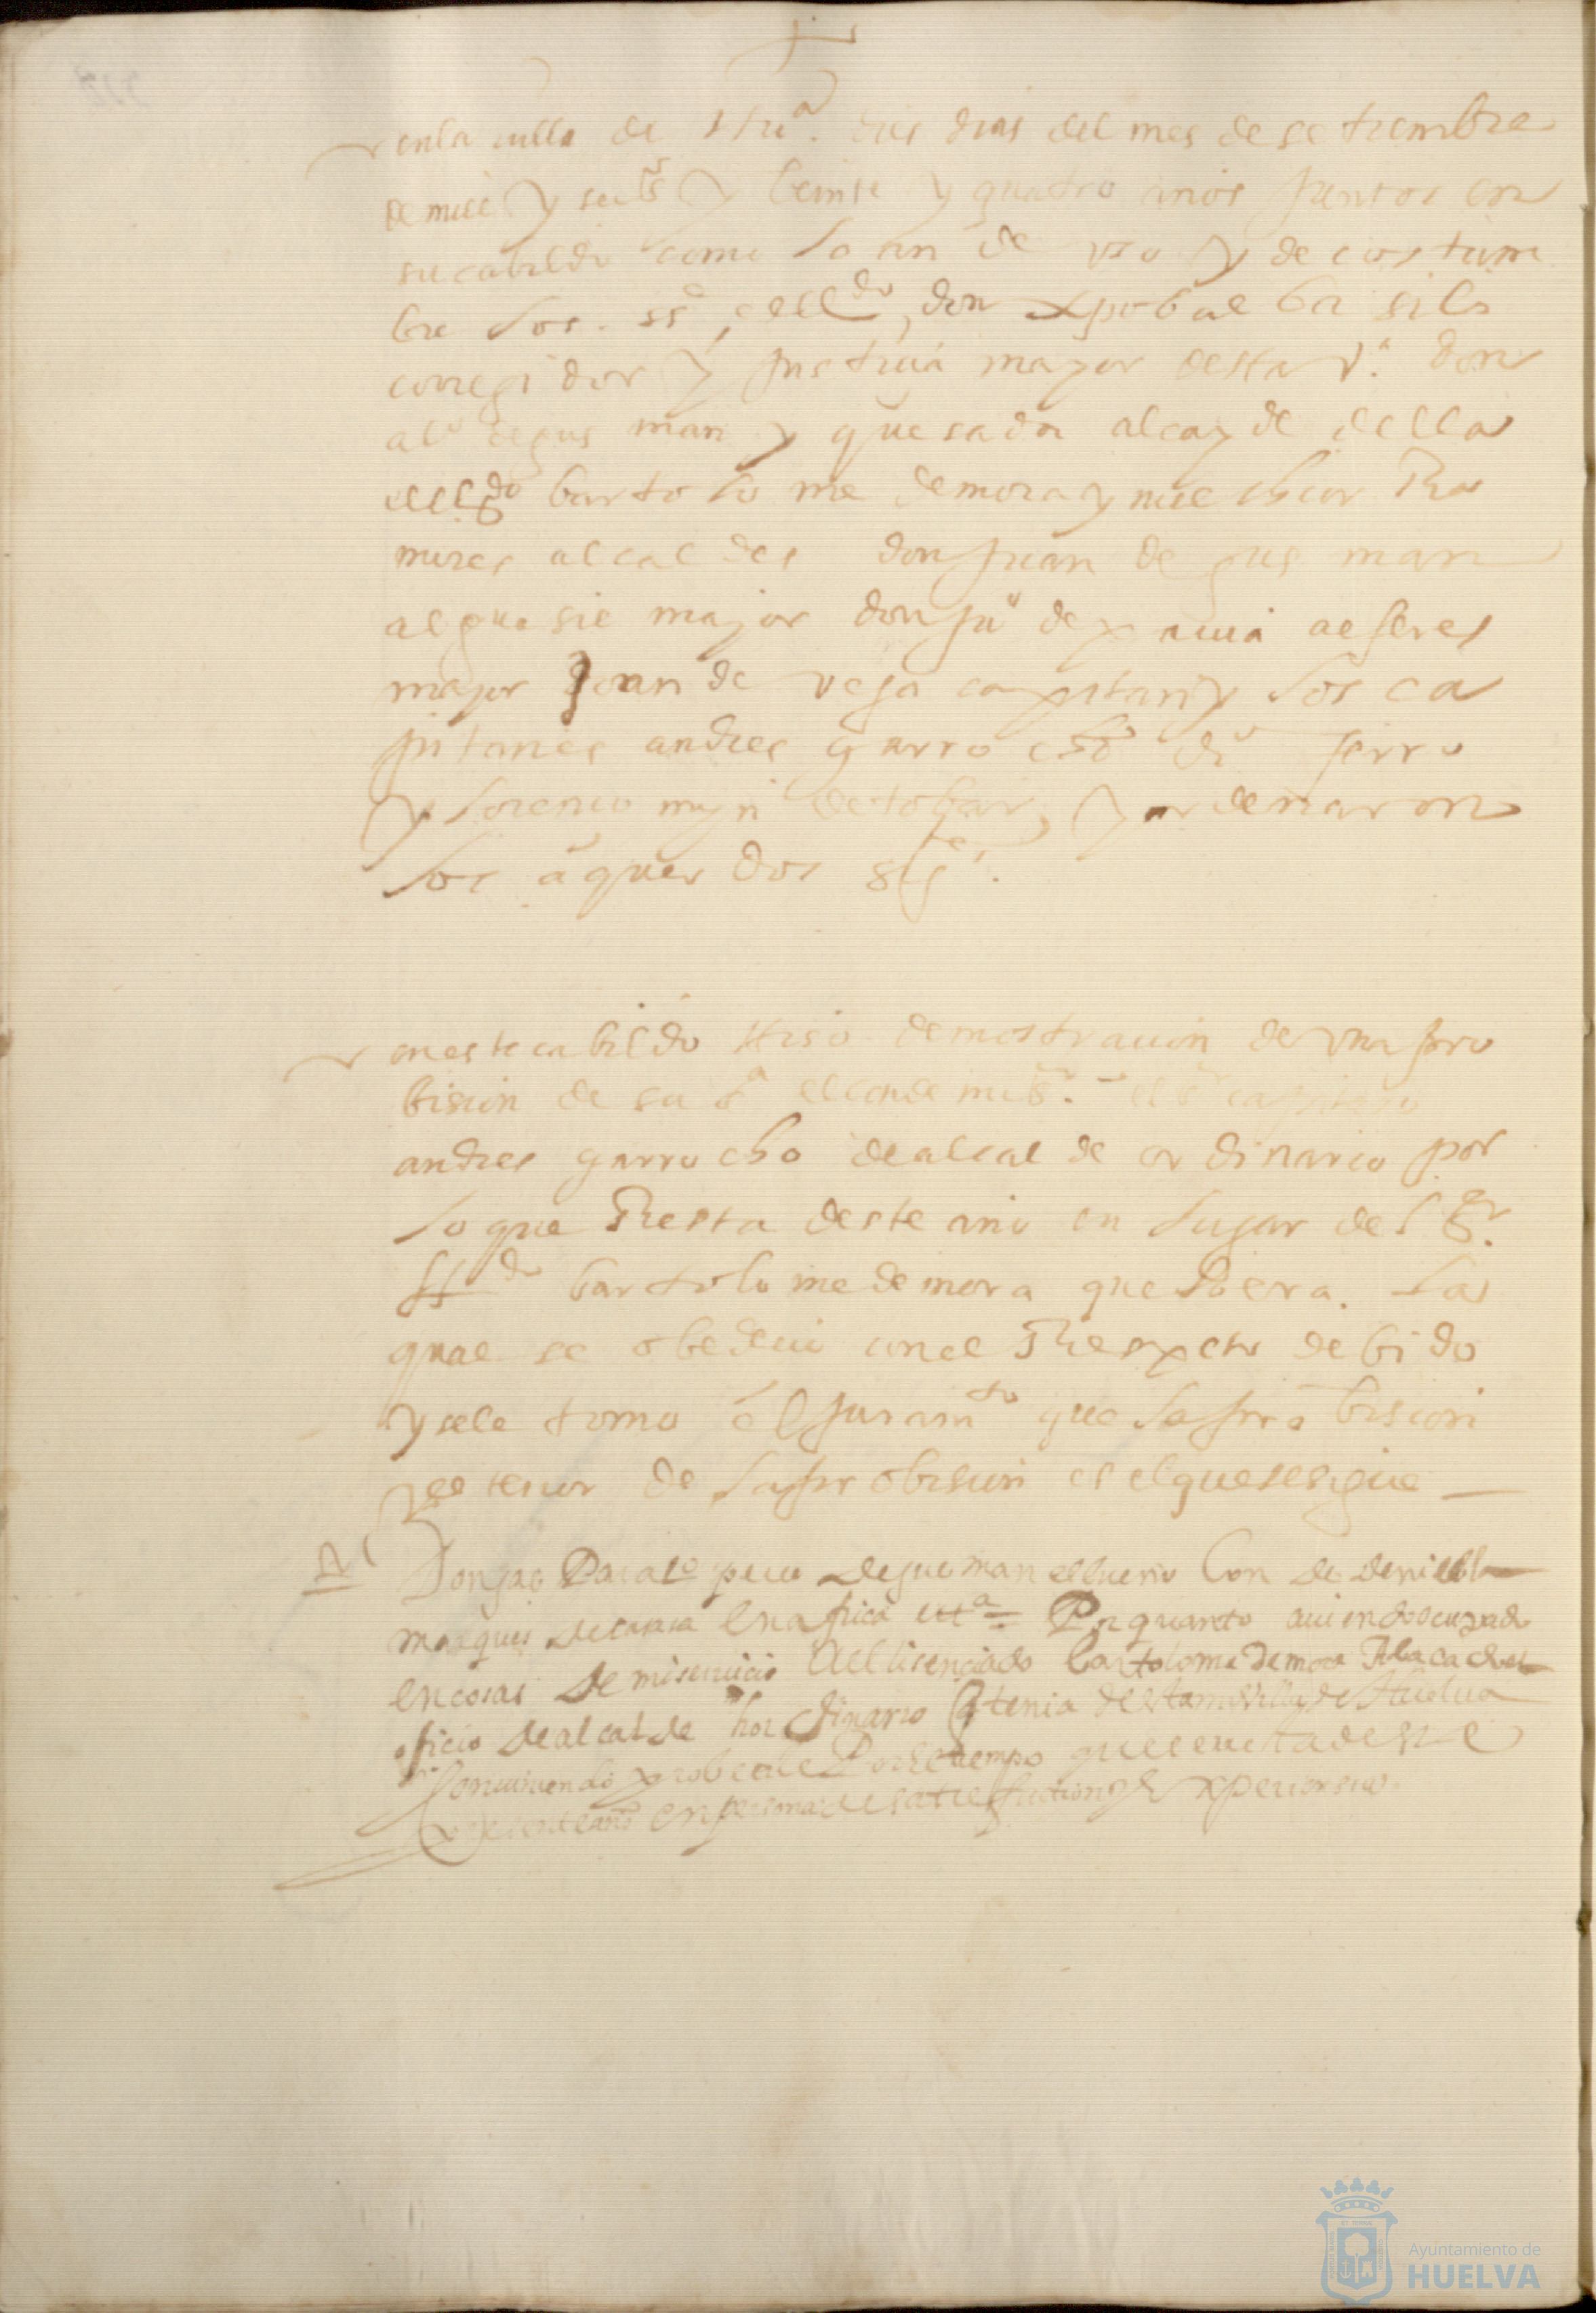 en la villa de Hua. dies dias del mes de setiembre
de mill y seisos y beinte y quatro años juntos en
su cabildo como lo an de uso y de costum
bre los. ss. el lldo, don xpobal ba
corregidor y justicia mayor desta va. don
alo de gusman y quesada alcayde della
el lldo bartolome de mora y melchor Ra
mires alcaldes don juan de gusman
alguasil major don juo de alferes
major joan de vega capitan y los ca
pitanes andres garrocho do
y lorenco mrn de tobar y ordenaron
los aquerdos sigtes.
en este cabildo hiso demostracion de una pro
bision de su sa el conde mi sr. el sr capitan
andres garrocho de alcalde ordinario por
lo que Resta deste año en lugar del sr.
lldo bartolome de mora que lo era. la
qual se obedecio con el Respecto debido
y se le tomo el juramto que la probision
y el tenor de la probision es el que se sigue
Don gas Para lo peres de guzman el bueno Conde de niebla
marques de casasa en africa etta = Por quanto auiendo ocupado
en cosas de mi seruicio Al lisenciado bartolome de mora
oficio de alcalde hordinario q tenia de la mi villa de Huelua
conuiniendo probeerle Por el tiempo que le resta deste
presente año en persona de satisfaction y experiensia
Ayuntamiento de
HUELVA